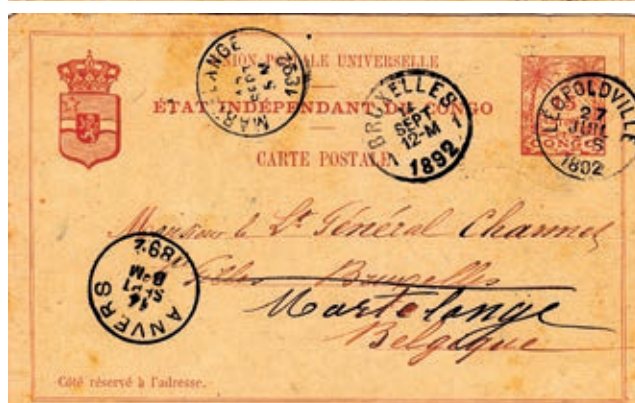 UNION POSTALE UNIVERSELLE
ÉTAT INDÉPENDANT DU CONGO
CARTE POSTALE
MARTELANGE
1892
BRUXELLES
14
SEPT
12-M
1 1
1892
LÉOPOLDVILLE
27
JUIL
1892
CONGO
Monsieur le Lt Général
Bruxelles
Martelange
Belgique
ANVERS
14
SEPT
1892
Côté réservé à l'adresse.